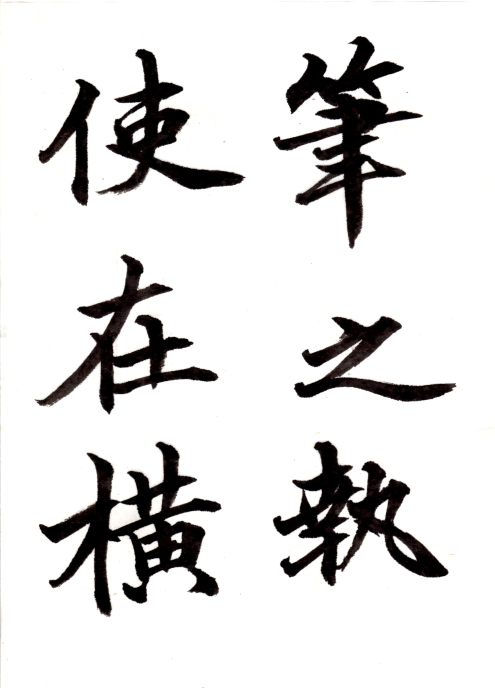 筆之執
使在橫